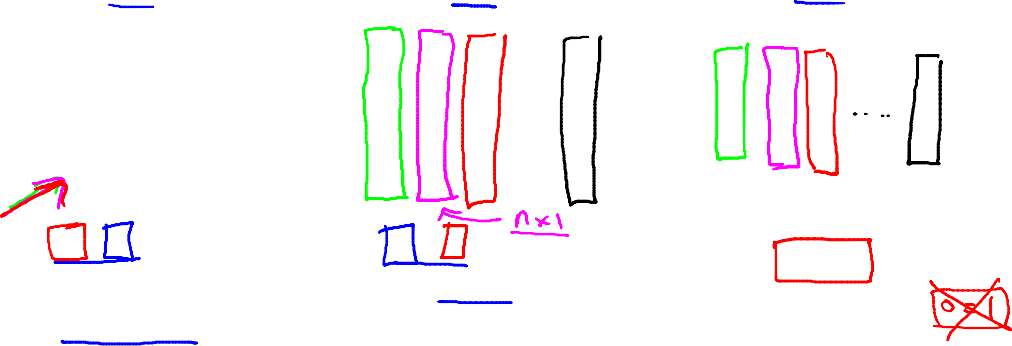 n×1
0=1